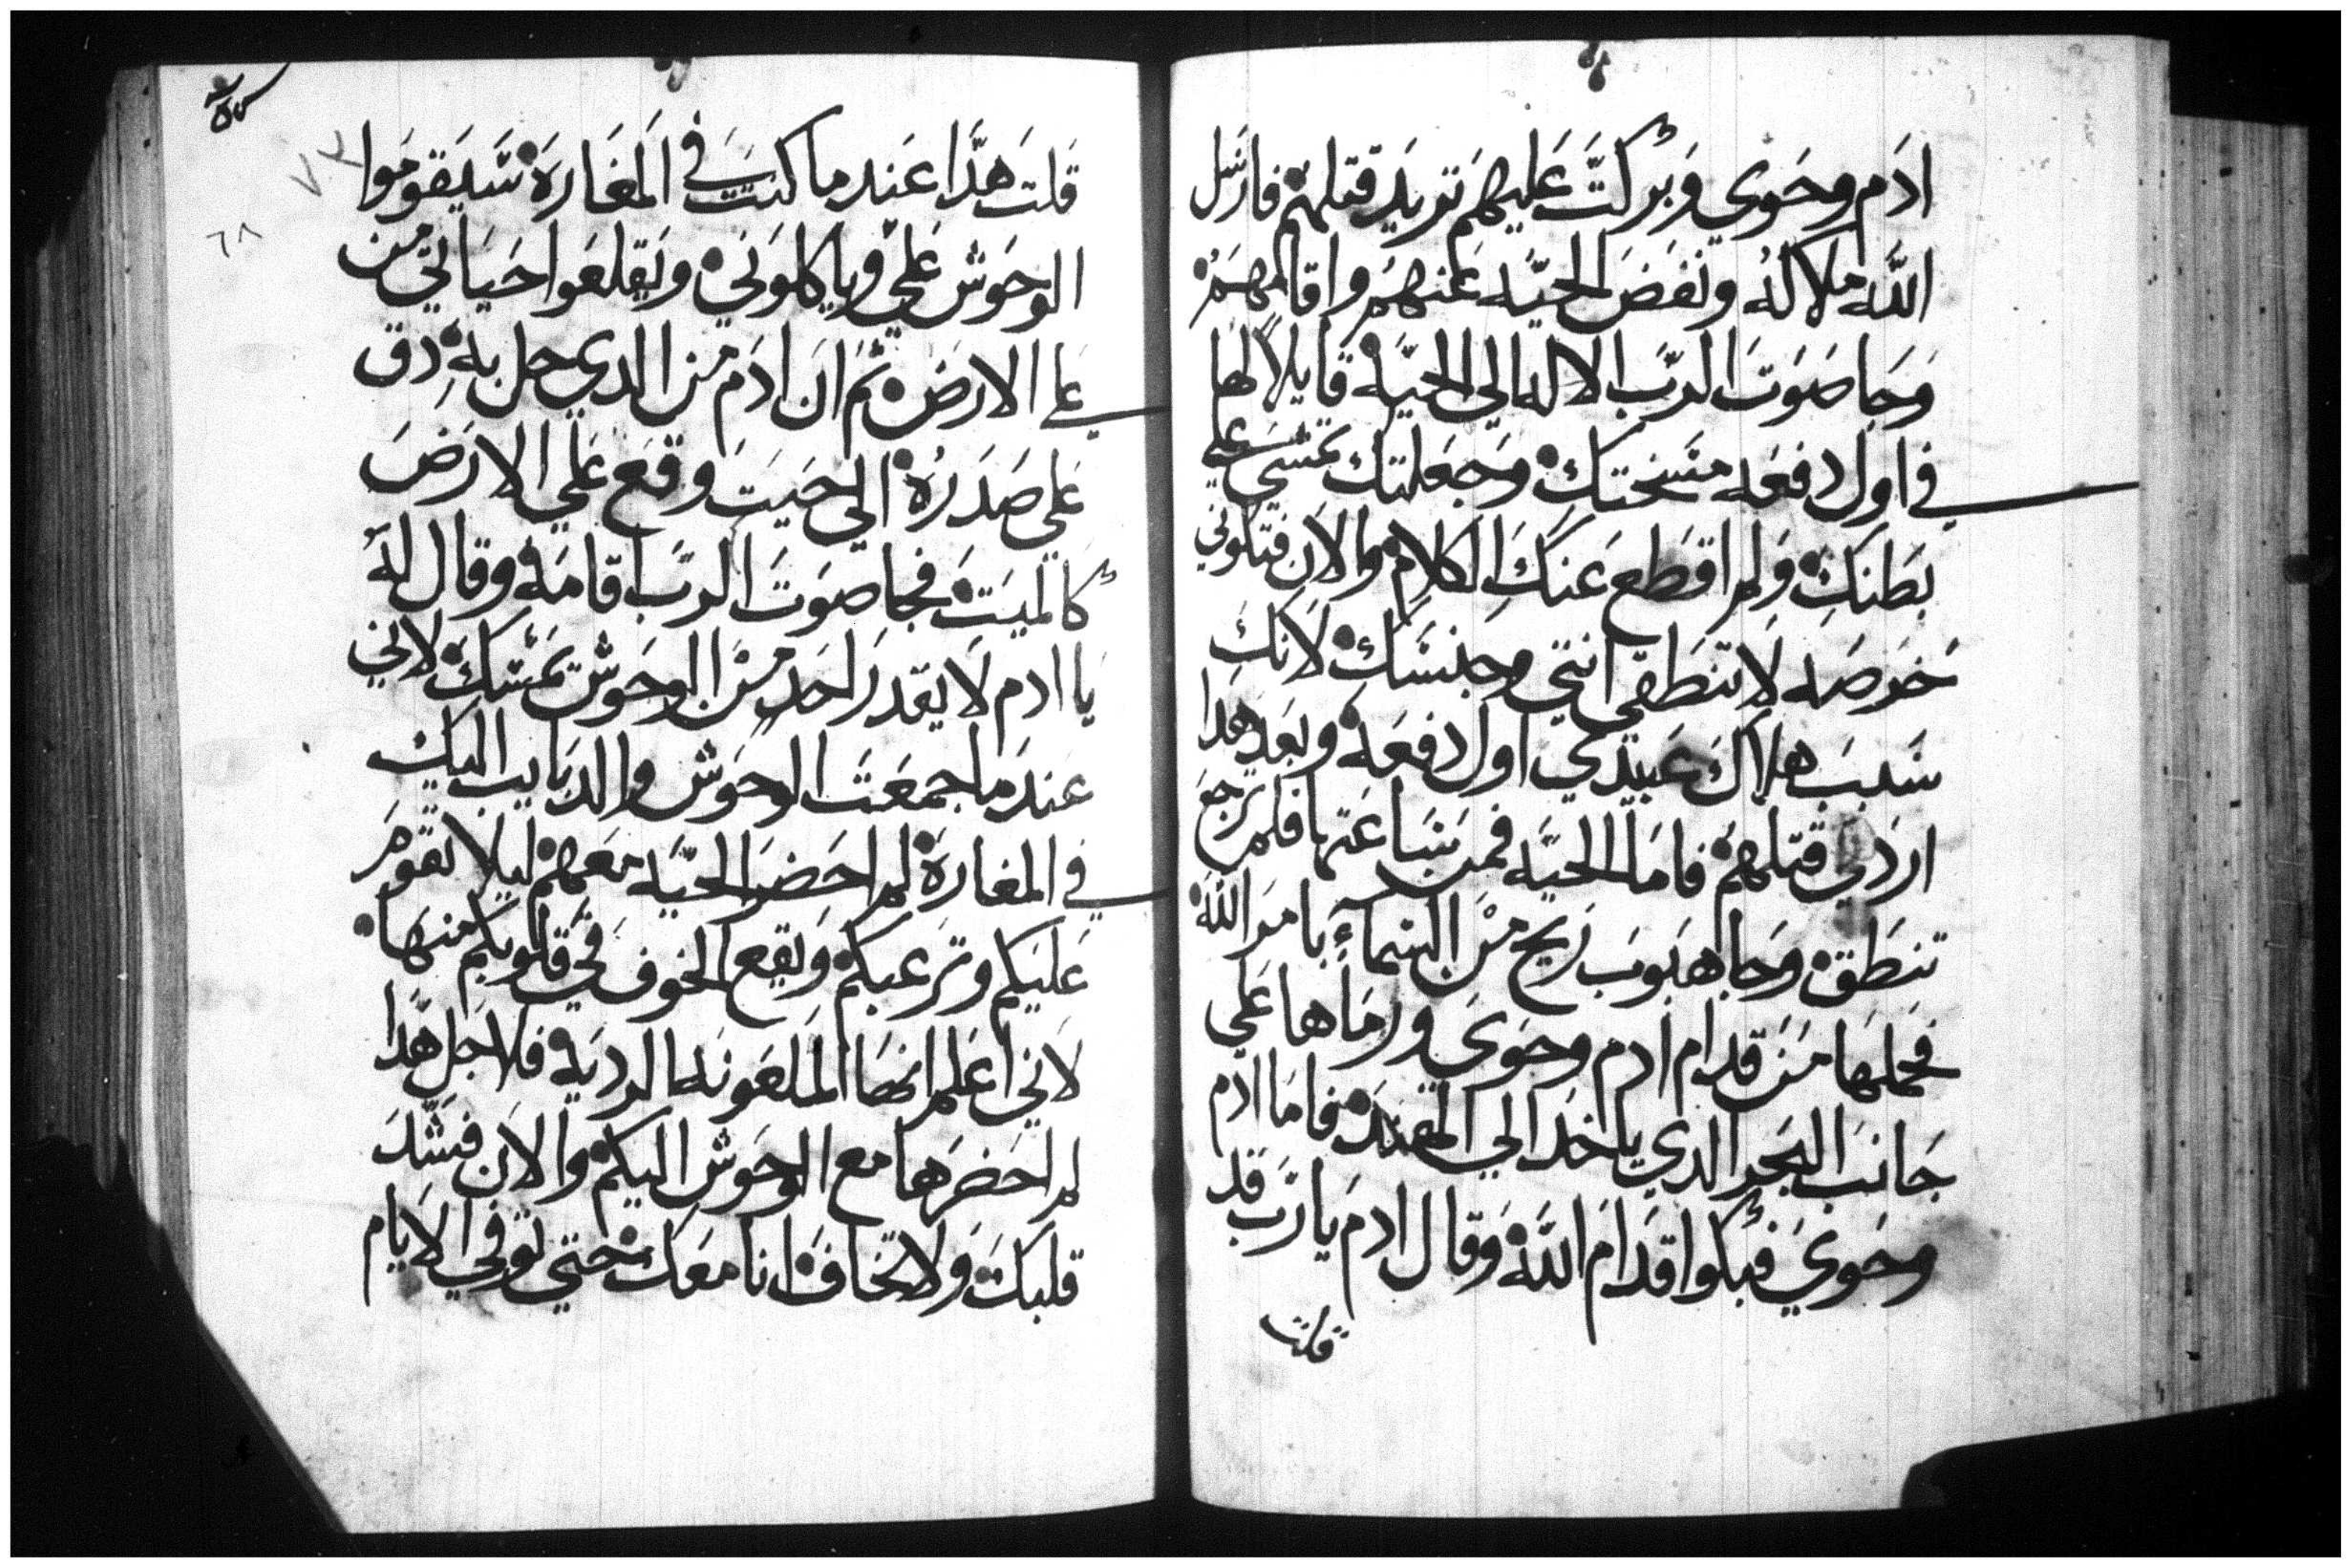 ادم وحوي وبركت عليهم تريد قتلهم فارسل
الله ملاكه ونفض الحيه عنهم واقامهم
وجا صوت الرب الاله الي الحيه قايلا لها
في اول دفعه مسختك وجعلتك تمشي علي
بطنك ولم اقطع عنك الكلام والان فتكوني
خرصه لا تنطقي انتي وجنسك لانك
سبب هلاك عبيدي اول دفعه وبعد هدا
اردتي قتلهم فاما الحيه فمن ساعتها فلم ترجع
تنطق وجا هبوب ريح من السماء بامر الله
فحملها من قدام ادم وحوي ورماها علي
جانب البحر الدي ياخد الي الهند فاما ادم
وحوي فبكوا قدام الله وقال ادم يارب قد
قلت
قلت هدا عندما كنت في المغاره سيقوموا
الوحوش علي وياكلوني ويقلعوا حياتي من
علي الارض ثم ان ادم من الدي حل به دق
علي صدره الي حيت وقع علي الارض
كالميت فجا صوت الرب اقامه وقال له
يا ادم لا يقدر احد من الوحوش تمسك لاني
عندما جمعت الوحوش والدبايب اليك
في المغاره لم احضر الحيه معهم ليلا تقوم
عليكم وترعبكم ويقع الخوف في قلوبكم منها
لاني اعلم انها الملعونه الرديه فلاجل هدا
لم احضرها مع الوحوش اليكم والان فشد
قلبك ولا تخاف انا معك حتي توفي الايام
٧٣
٦٨